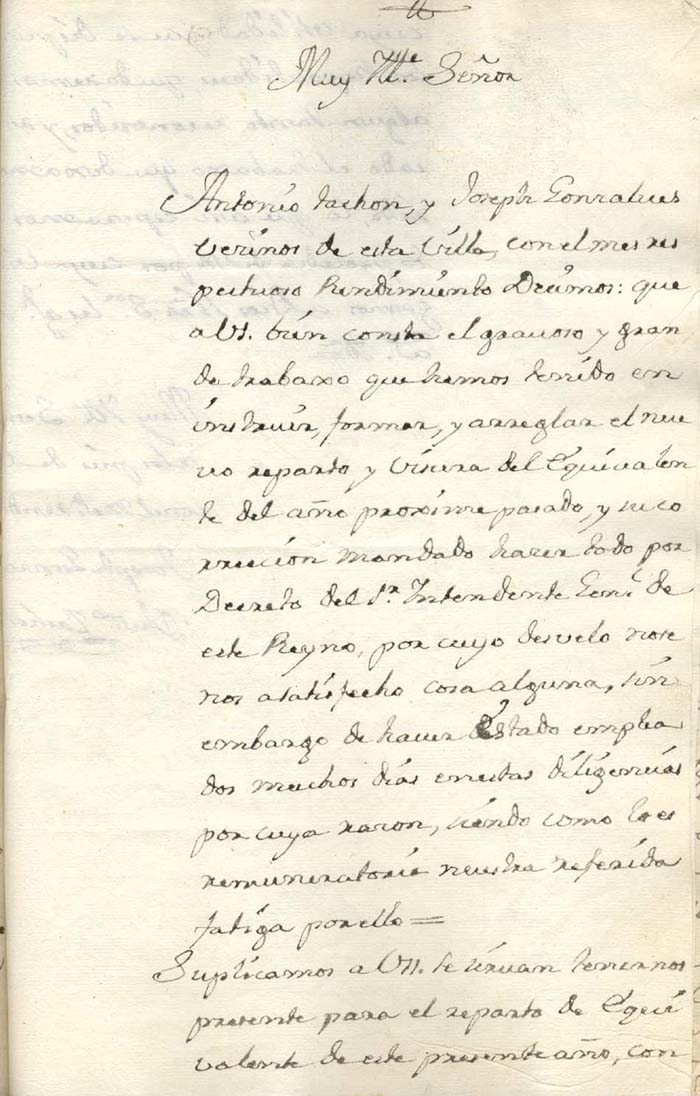 Muy Ille. Señor
Antonio tachon, y Joseph Gonzalves
vezinos de esta Villa, con el mes res
pectuoso Rendimiento Decimos: que
a VS. bien consta el gravoso y gran
de trabaxo que hemos tenido en
instruir, formar, y arreglar el nue
vo reparto y Visura del Equivalen
te del año proximo pasado, y su co
rreccion mandado hazer todo por
Decreto del Sr. Intendente Genl. de
este Reyno, por cuyo desvelo nose
nos asatisfecho cosa alguna, sin
embargo de haver Estado emplea
dos muchos dias en estas diligencias
por cuya razon, siendo como lo es
remuneratoria nuestra referida
fatiga por ello =
Suplicamos a VSS. se sirvan tenernos
presente para el reparto de Equi
valente de este presente año, con